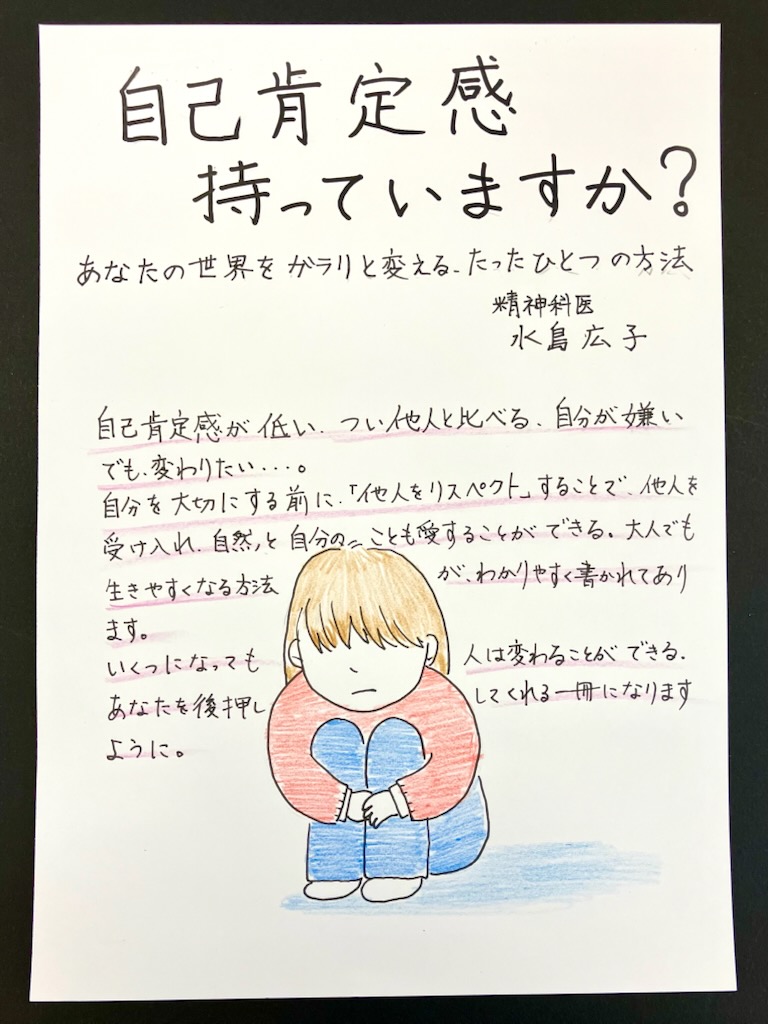 自己肯定感
持っていますか?
あなたの世界をガラリと変える、たったひとつの方法
精神科医
水島広子
自己肯定感が低い、つい他人と比べる、自分が嫌い
でも、変わりたい・・・。
自分を大切にする前に、「他人をリスペクト」することで、他人を
受け入れ、自然と自分のことも愛することができる。大人でも
生きやすくなる方法が、わかりやすく書かれてあり
ます。
いくつになっても人は変わることができる。
あなたを後押ししてくれる一冊になります
ように。